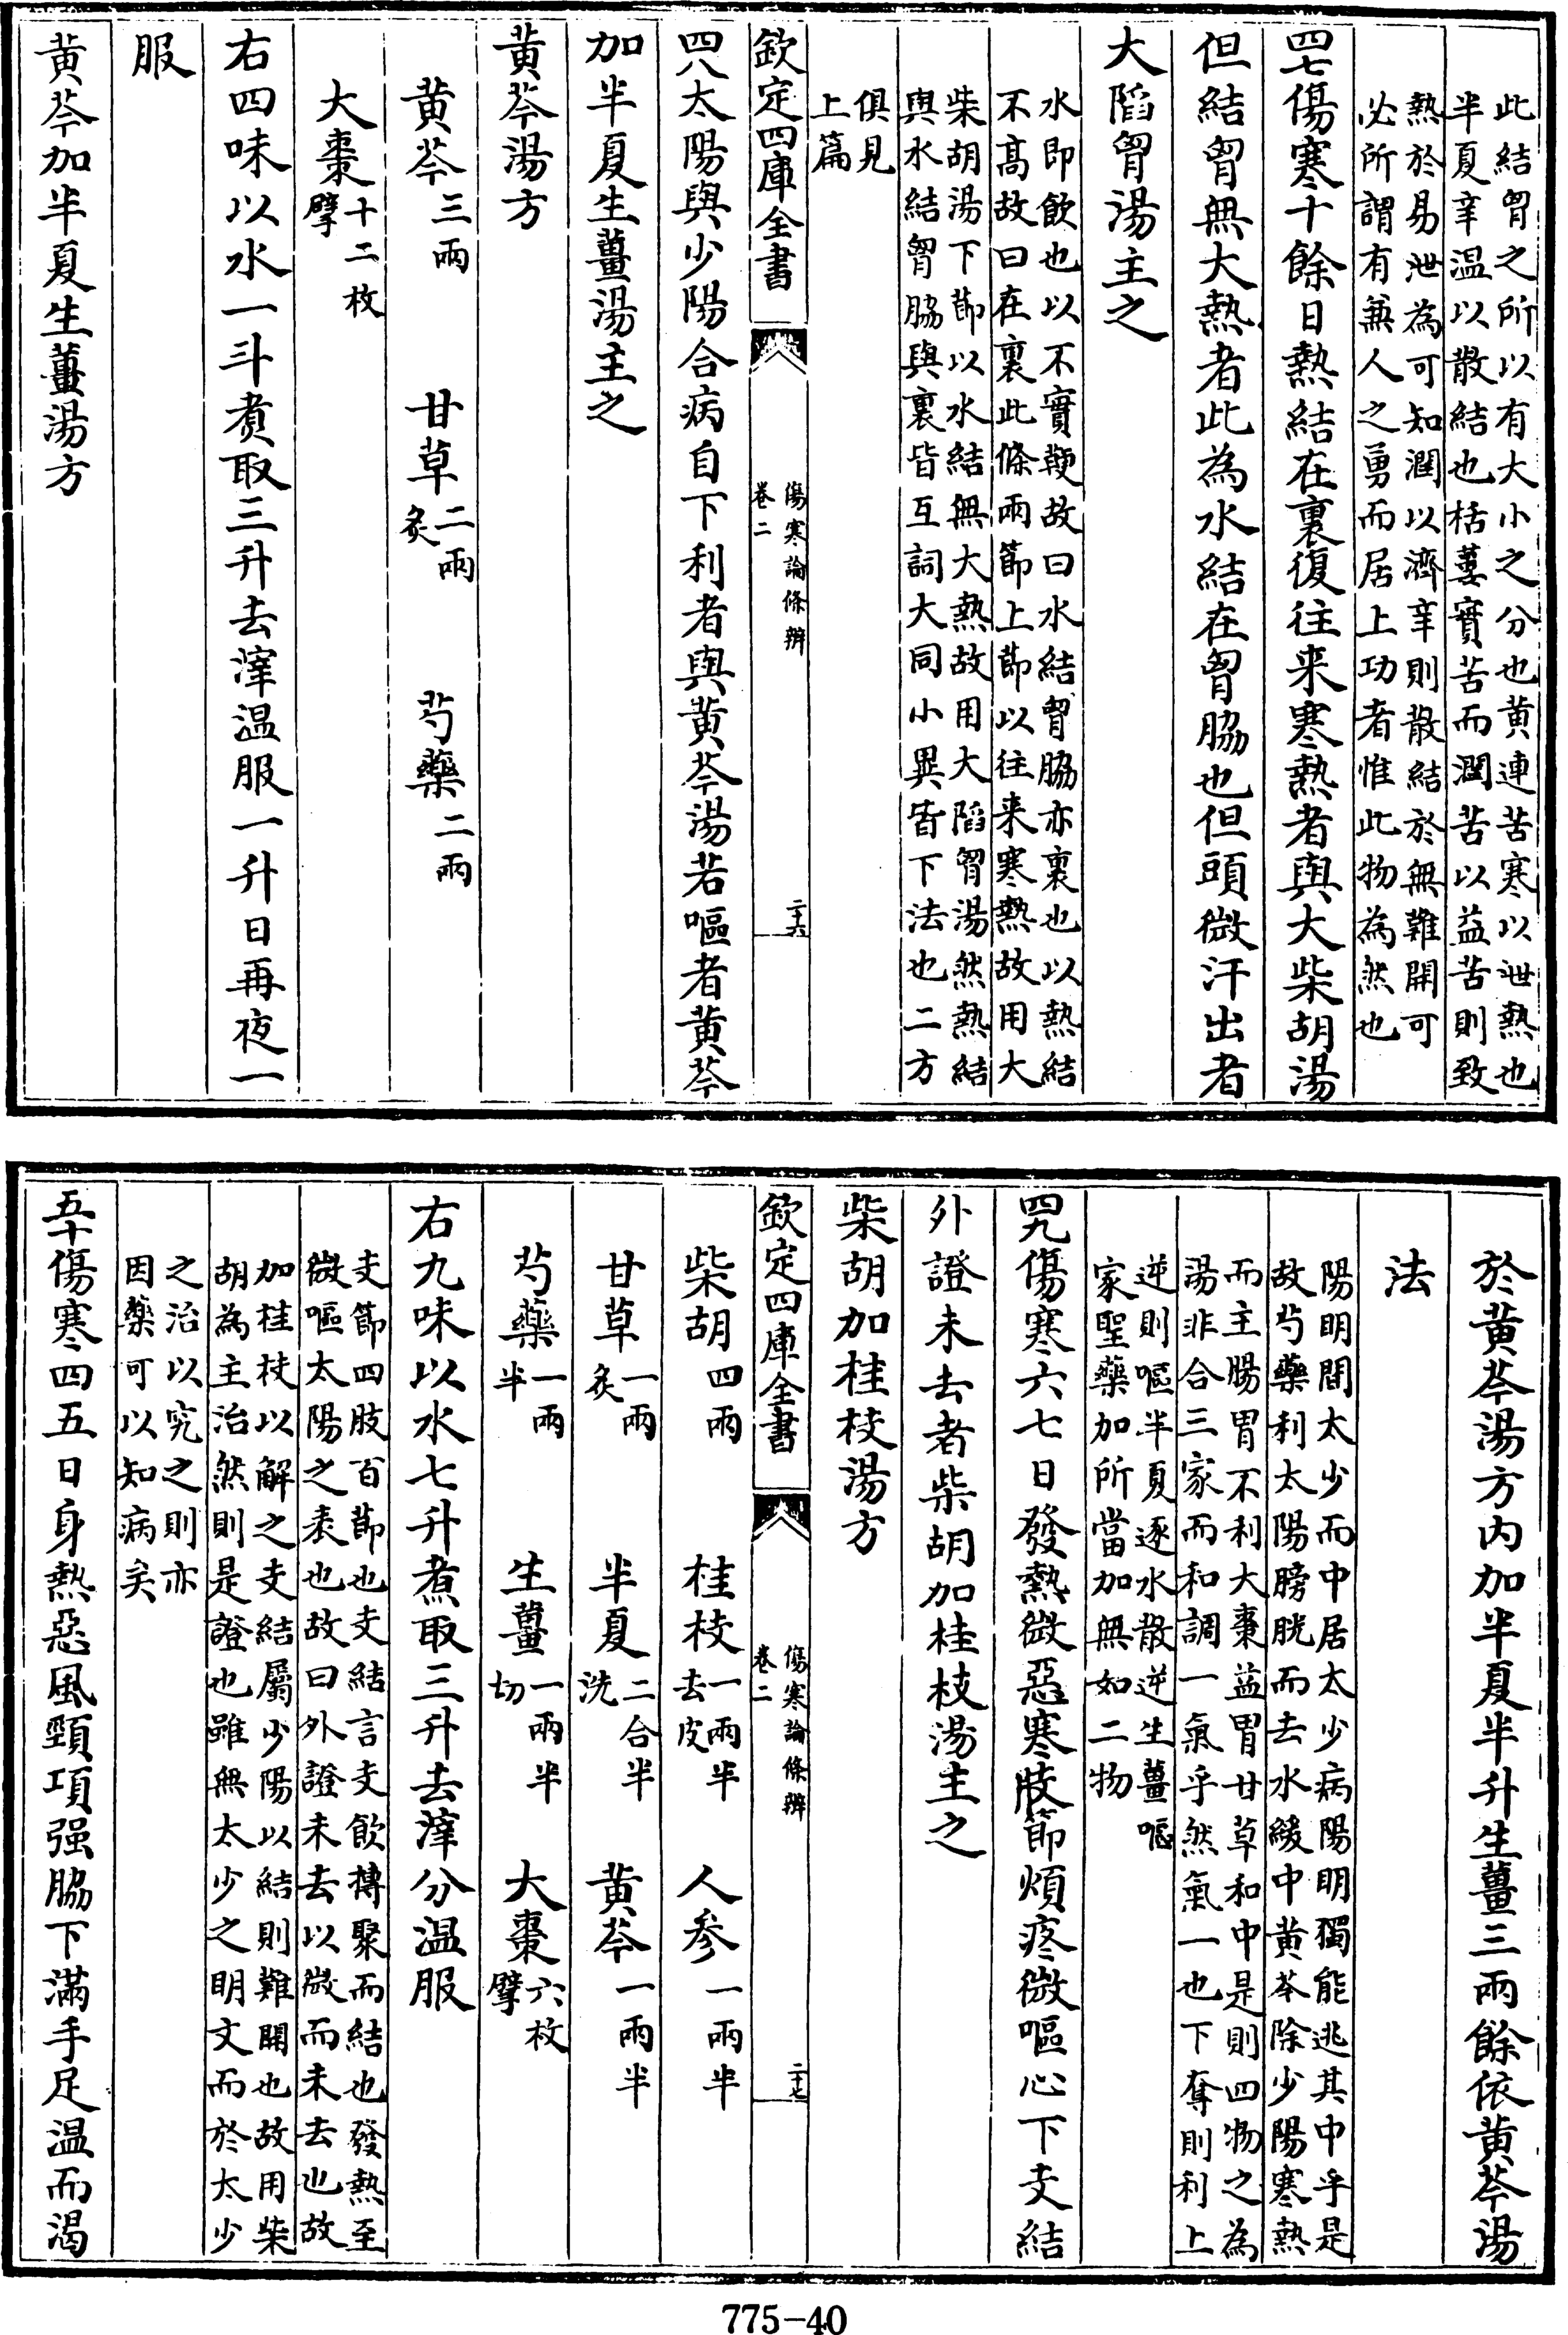 此結胷之所以有大小之分也黄連苦寒以泄熱也
半夏辛温以散結也栝蔞實苦而潤苦以益苦則致
熱於易泄為可知潤以濟辛則散結於無難開可
必所謂有兼人之勇而居上功者惟此物為然也
四七傷寒十餘日熱結在裏復往来寒熱者與大柴胡湯
但結胷無大熱者此為水結在胷脇也但頭微汗出者
大䧟胷湯主之
水即飲也以不實鞕故曰水結胷脇亦裏也以熱結
不髙故曰在裏此條兩節上節以往来寒熱故用大
柴胡湯下節以水結無大熱故用大䧟胷湯然熱結
與水結胷脇與裏皆互詞大同小異皆下法也二方
俱見
上篇
欽定四庫全書
傷寒論條辨
卷二
二十六
四八太陽與少陽合病自下利者與黄芩湯若嘔者黄芩
加半夏生薑湯主之
黄芩湯方
黄芩三兩 甘草二兩炙 芍藥二兩
大棗十二枚擘
右四味以水一斗煑取三升去滓温服一升日再夜一
服
黄芩加半夏生薑湯方
於黄芩湯方内加半夏半升生薑三兩餘依黄芩湯
法
陽明間太少而中居太少病陽明獨能逃其中乎是
故芍藥利太陽膀胱而去水緩中黄芩除少陽寒熱
而主腸胃不利大棗益胃甘草和中是則四物之為
湯非合三家而和調一氣乎然氣一也下奪則利上
逆則嘔半夏逐水散逆生薑嘔
家聖藥加所當加無如二物
四九傷寒六七日發熱微惡寒肢節煩疼微嘔心下支結
外證未去者柴胡加桂枝湯主之
柴胡加桂枝湯方
欽定四庫全書
傷寒論條辨
卷二
二十七
柴胡四兩 桂枝一兩半去皮 人參一兩半
甘草一兩炙 半夏二合半洗 黄芩一兩半
芍藥一兩半 生薑一兩半切 大棗六枚擘
右九味以水七升煮取三升去滓分温服
支節四肢百節也支結言支飲摶聚而結也發熱至
微嘔太陽之表也故曰外證未去以微而未去也故
加桂枝以解之支結屬少陽以結則難開也故用柴
胡為主治然則是證也雖無太少之明文而於太少
之治以究之則亦
因藥可以知病矣
五十傷寒四五日身熱惡風頸項强脇下滿手足温而渴
775-40